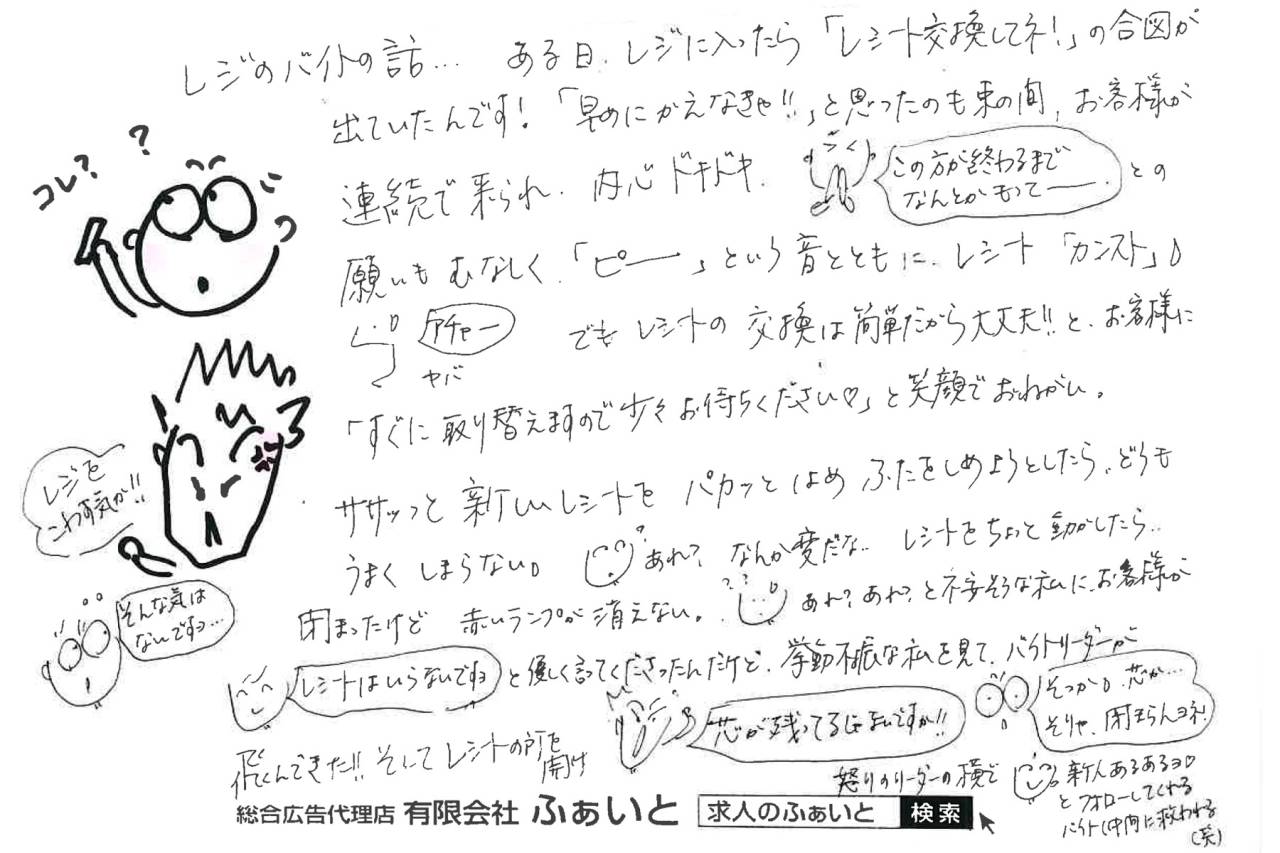 レジのバイトの話… ある日、レジに入ったら「レシート交換してネ!」の合図が
出ていたんです!「早めにかえなきゃ!!」と思ったのも束の間、お客様が
コレ? ?
連続で来られ、内心ドキドキ。
この方が終わるまで
なんとかもってーー。
との
願いもむなしく、「ピーー」という音とともに、レシート「カンスト」。
アチャー
ヤバ
でもレシートの交換は簡単だから大丈夫!!と、お客様に
「すぐに取り替えますので少々お待ちください♡」と笑顔でおねがい。
レジを
こわす気か!!
ササッっと新しいレシートをパカッとはめふたをしめようとしたら、どうも
うまくしまらない。 あれ? なんか変だな.. レシートをちょっと動かしたら..
そんな気は
ないですヨ…
閉まったけど 赤いランプが消えない。 あれ?あれ?と不安そうな私に、お客様が
レシートはいらないですヨ
と優しく言ってくださったんだけど、挙動不振な私を見て、バイトリーダーが
飛んできた!!そしてレシートの所を
開け
芯が残ってるじゃないですか!!
そっか。芯か…
そりゃ、閉まらんヨネ!
怒りのリーダーの横で
新人あるあるヨ♡
とフォローしてくれる
バイト仲間に救われる
(笑)
総合広告代理店 有限会社 ふぁいと 求人のふぁいと 検索